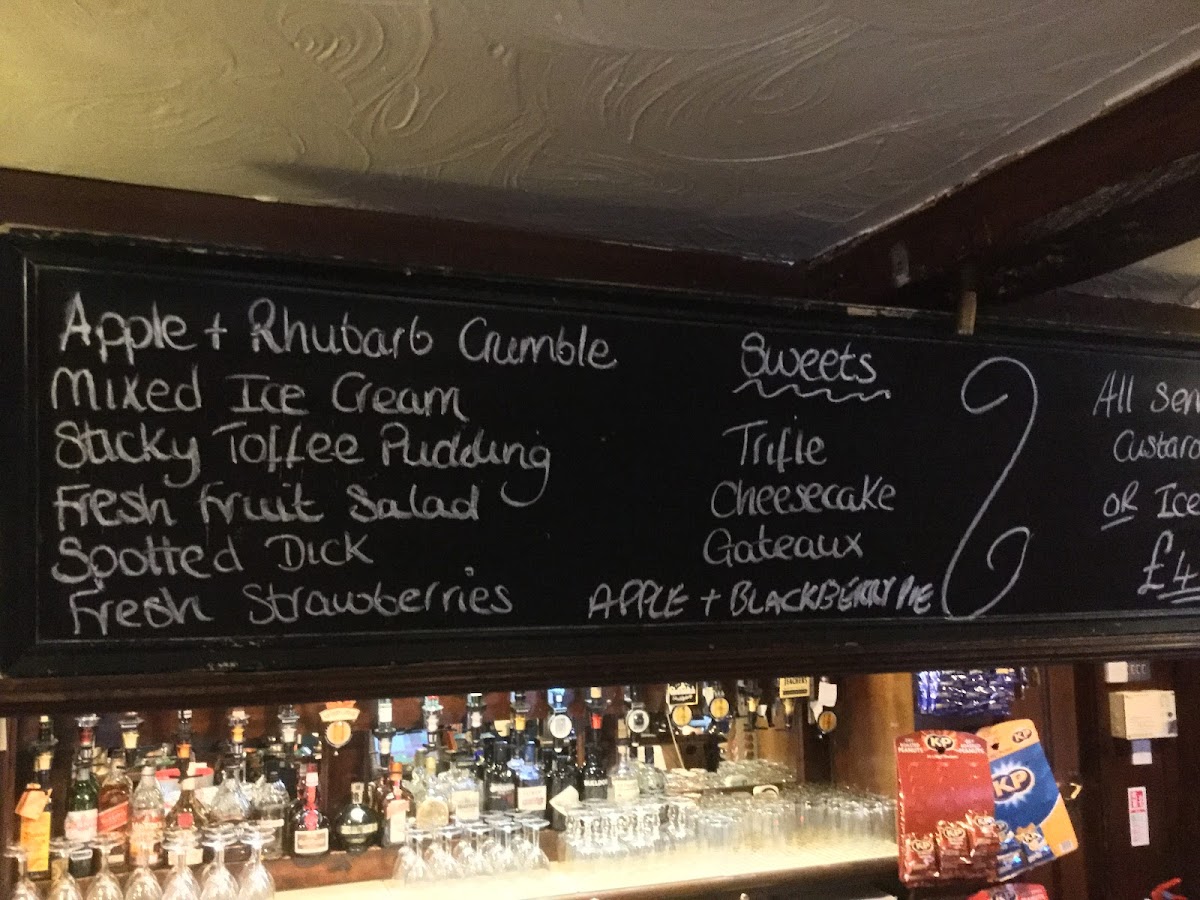 Apple + Rhubarb Crumble
Mixed Ice Cream
Sticky Toffee Pudding
Fresh Fruit Salad
Spotted Dick
Fresh Strawberries
Sweets
Trifle
Cheesecake
Gateaux
APPLE + BLACKBERRY PIE
All
OR Ice
£4
TEACHERS
KP
KP